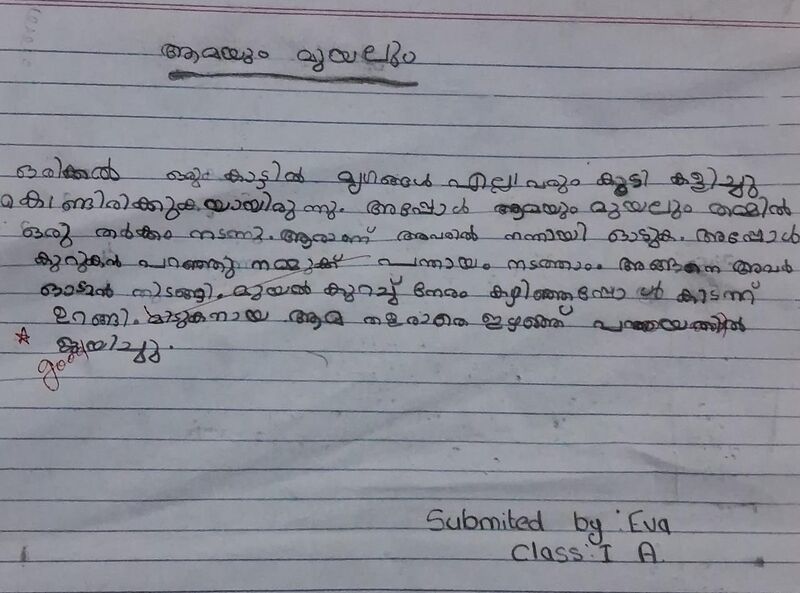 ആമയും മുയലും
ഒരിക്കൽ ഒരു കാട്ടിൽ മൃഗങ്ങൾ എല്ലാവരും കൂടി കളിച്ചു
കൊണ്ടിരിക്കുകയായിരുന്നു. അപ്പോൾ ആമയും മുയലും തമ്മിൽ
ഒരു തർക്കം നടന്നു. ആരാണ് അവരിൽ നന്നായി ഓടുക. അപ്പോൾ
കുറുക്കൻ പറഞ്ഞു നമ്മുക്ക് പന്തായം നടത്താം. അങ്ങനെ അവർ
ഓടാൻ തുടങ്ങി. മുയൽ കുറച്ച് നേരം കഴിഞ്ഞപ്പോൾ കിടന്ന്
ഉറങ്ങി. മിടുക്കനായ ആമ തളരാതെ ഇഴഞ്ഞ് പന്തയത്തിൽ
ജയിച്ചു.
good
Submited by : Eva
Class : I A